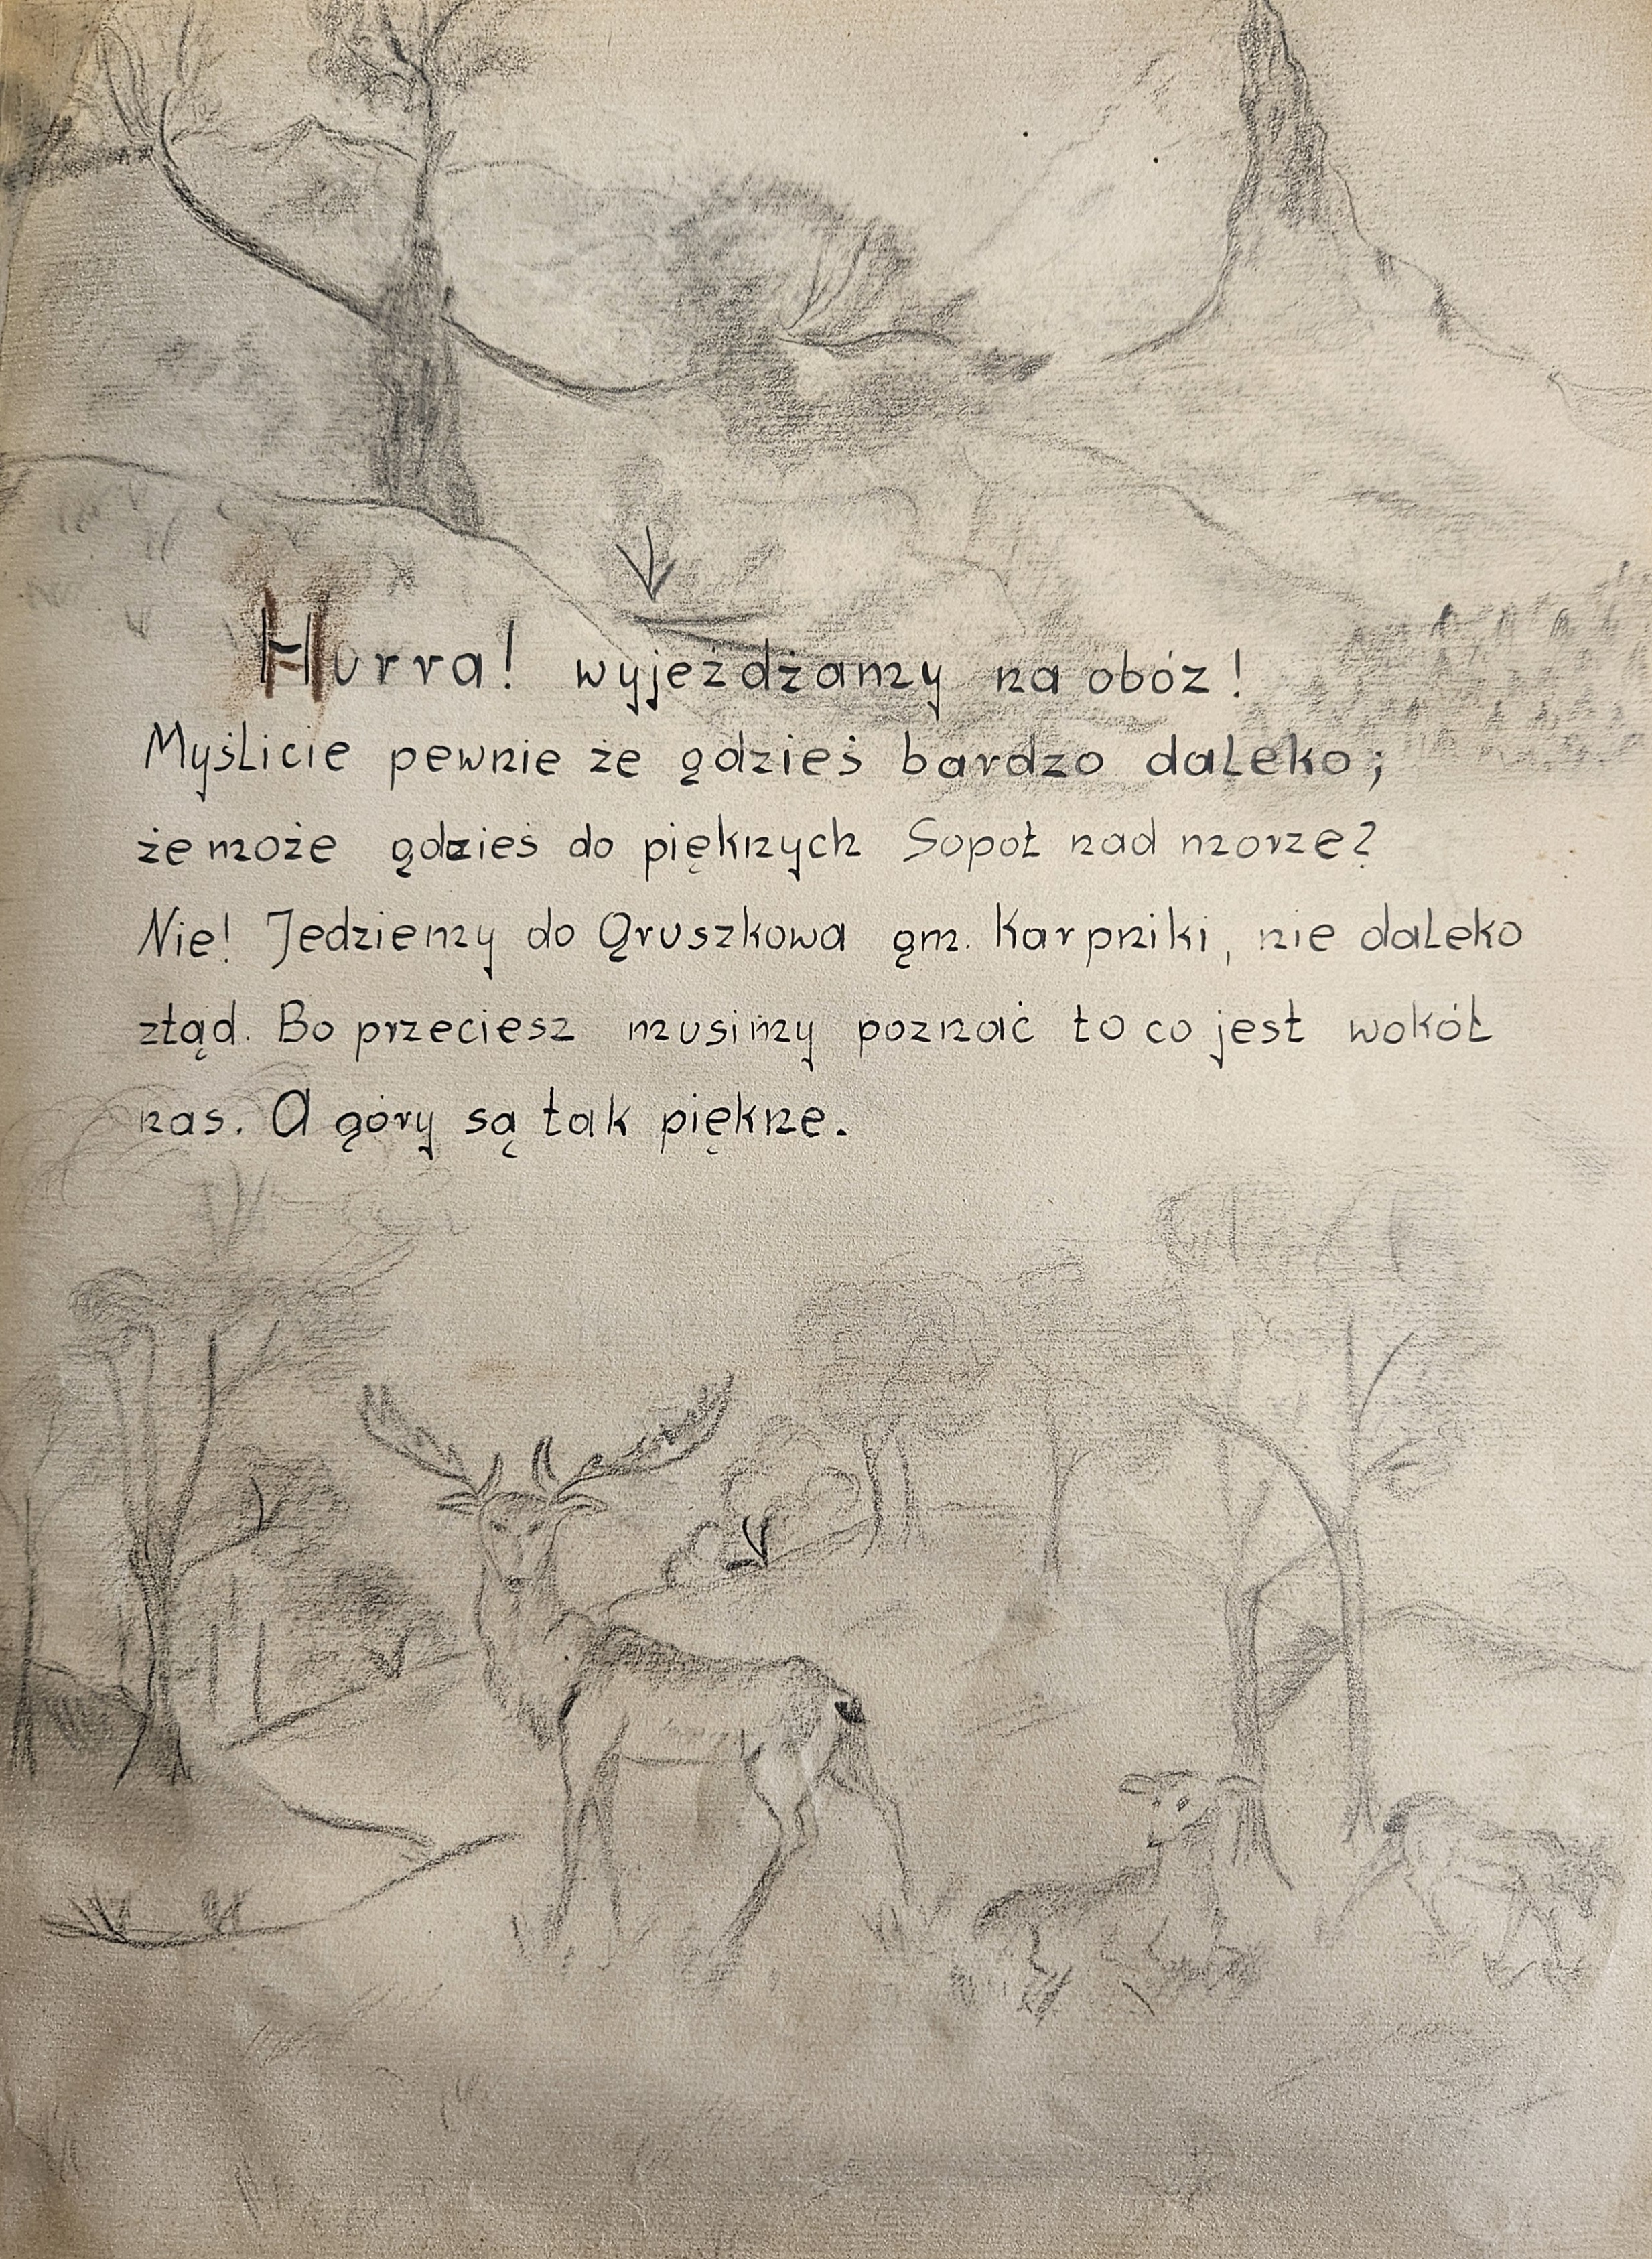 Hurra! wyjeżdżamy na obóz!
Myślicie pewnie że gdzieś bardzo daleko;
że może gdzieś do pięknych Sopot nad morze?
Nie! Jedziemy do Gruszkowa gm. Karpniki, nie daleko
ztąd. Bo przeciesz musimy poznać to co jest wokół
nas. A góry są tak piękne.